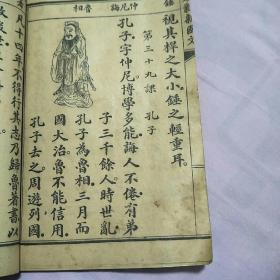 視其桿之大小錘之輕重耳。
第三十九課 孔子
孔子字仲尼博學多能誨人不倦有弟
子三千餘人時世亂
孔子為魯相三月而
國大治魯不能信用
孔子去之周遊列國
仲尼誨
魯相
凡十四年不得行其志乃歸魯著書以